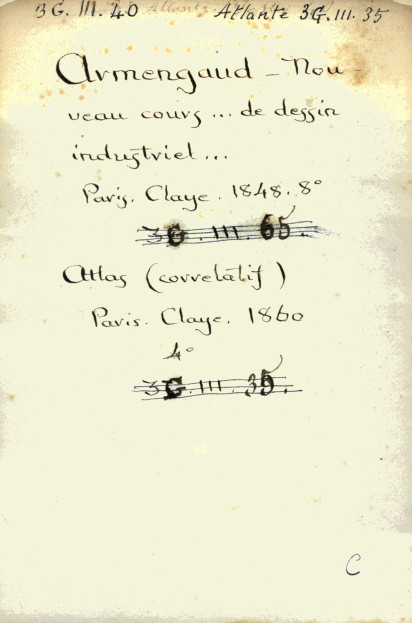 3G. III. 40 Atlante 3G. III. 35
Armengaud - Nou-
veau cours ... de dessin
industriel ...
Paris. Claye. 1848. 8°
3G. III. 65.
Atlas (correlatif)
Paris. Claye. 1860
4°
3G. III. 35.
C